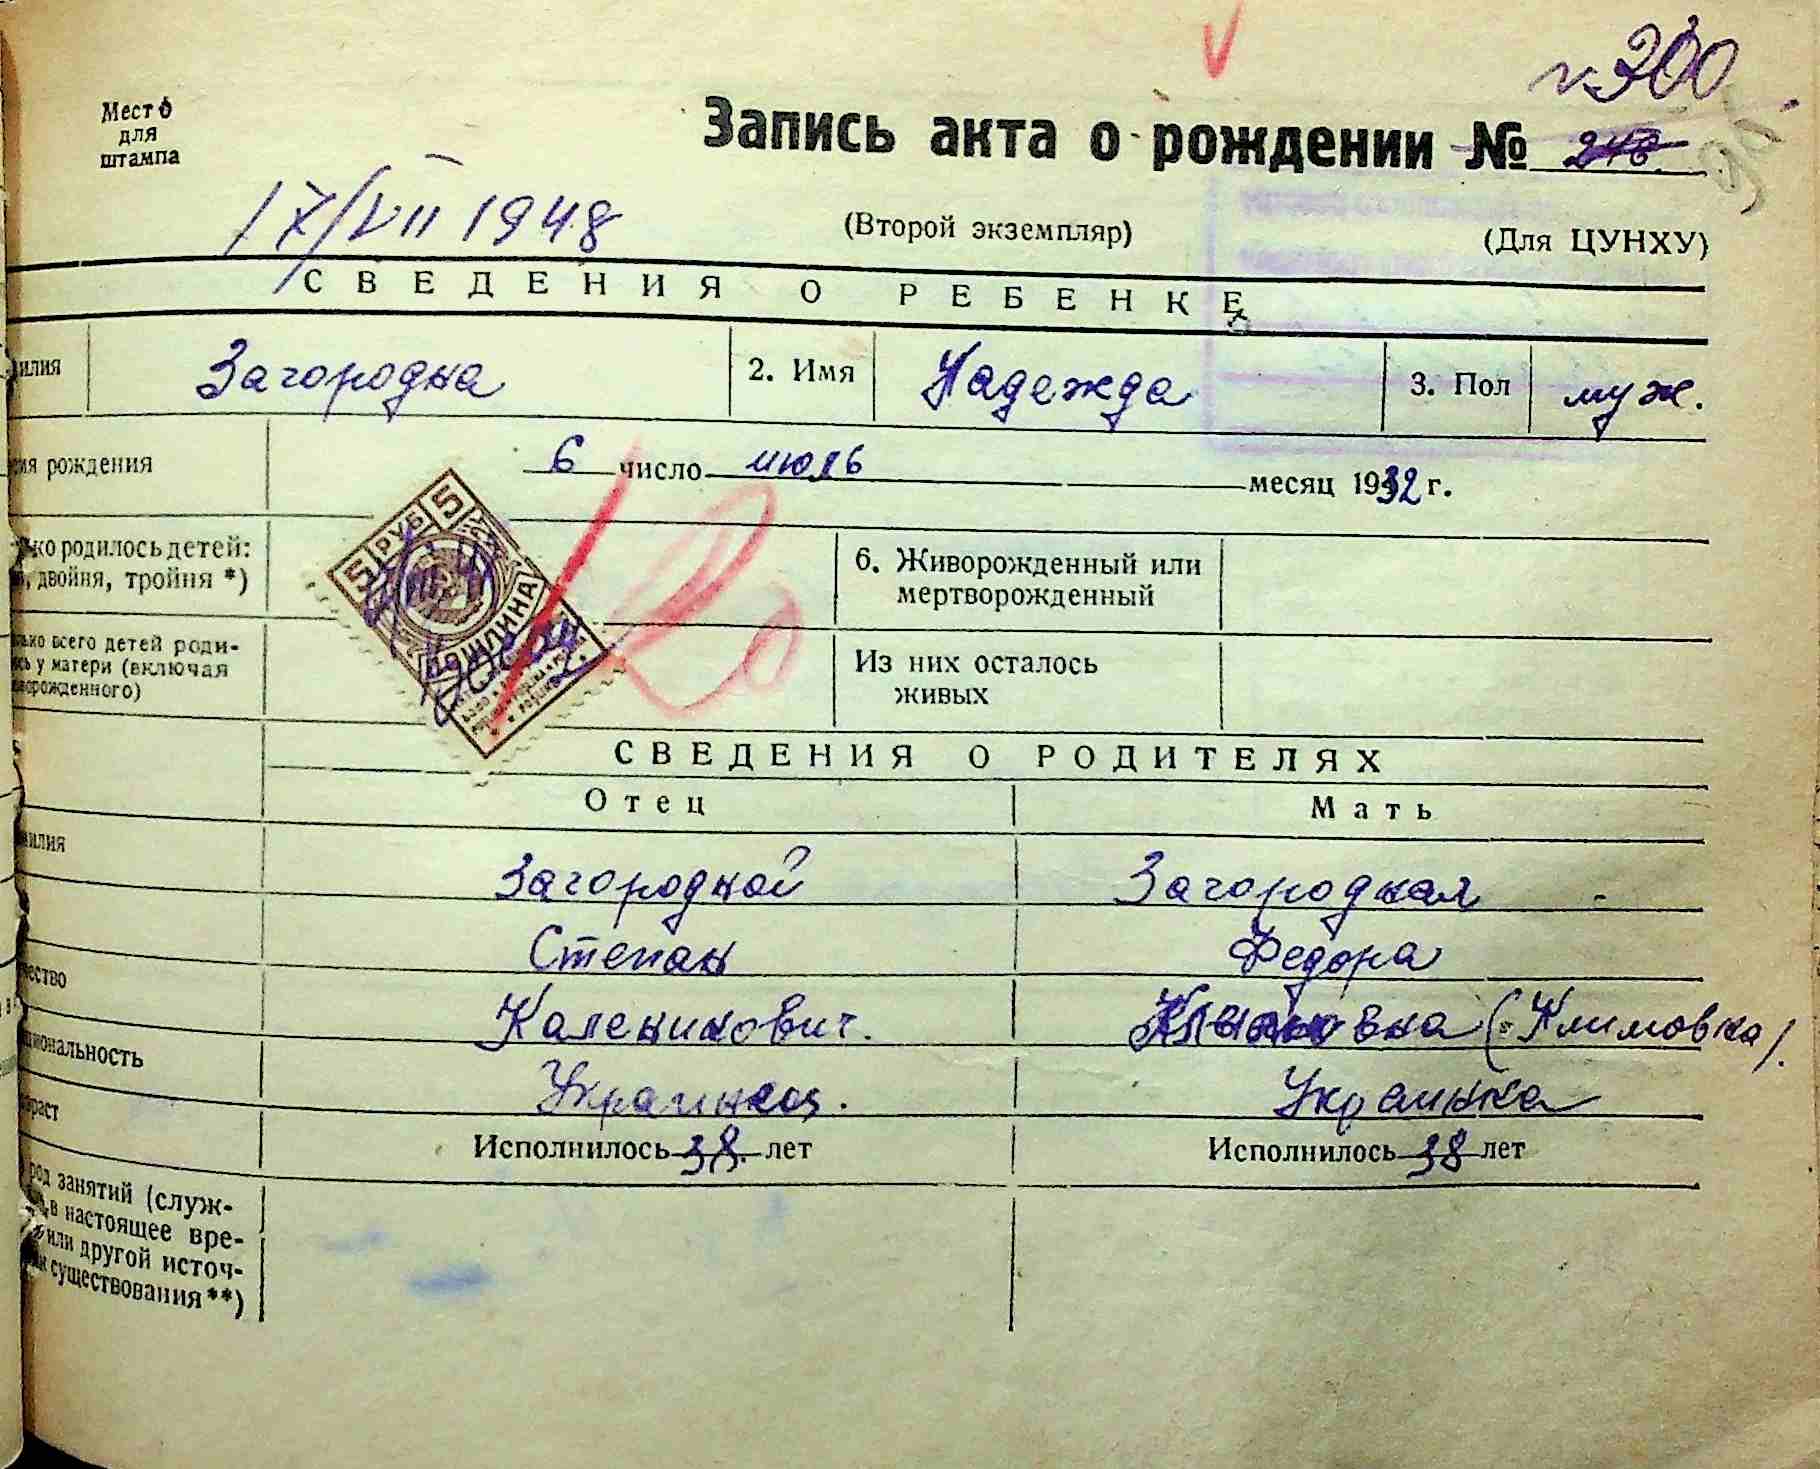 № 300
Место
для
штампа
Запись акта о рождении № 246
17/VII 1948
(Второй экземпляр)
(Для ЦУНХУ)
СВЕДЕНИЯ О РЕБЕНКЕ
илия Загородна 2. Имя Надежда 3. Пол муж.
рождения 6 число июль месяц 1932 г.
ко родилось детей:
двойня, тройня *)
6. Живорожденный или
мертворожденный
5 РУБ 5
ПОШЛИНА
всего детей роди-
у матери (включая
ворожденного)
Из них осталось
живых
СВЕДЕНИЯ О РОДИТЕЛЯХ
Отец Мать
илия Загородной Загородная
Степан Федора
ество Каленикович. (Климовна).
циональность Украинец. Украинка
раст Исполнилось 38 лет Исполнилось 38 лет
род занятий (служ-
в настоящее вре-
или другой источ-
существования **)